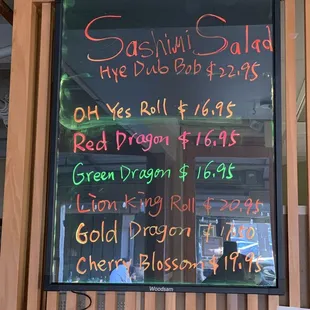 Sashimi Salad
Hye Dub Bob $22.95
OH Yes Roll $16.95
Red Dragon $16.95
Green Dragon $16.95
Lion King Roll $20.95
Gold Dragon
Cherry Blossom $19.95
Woodsam